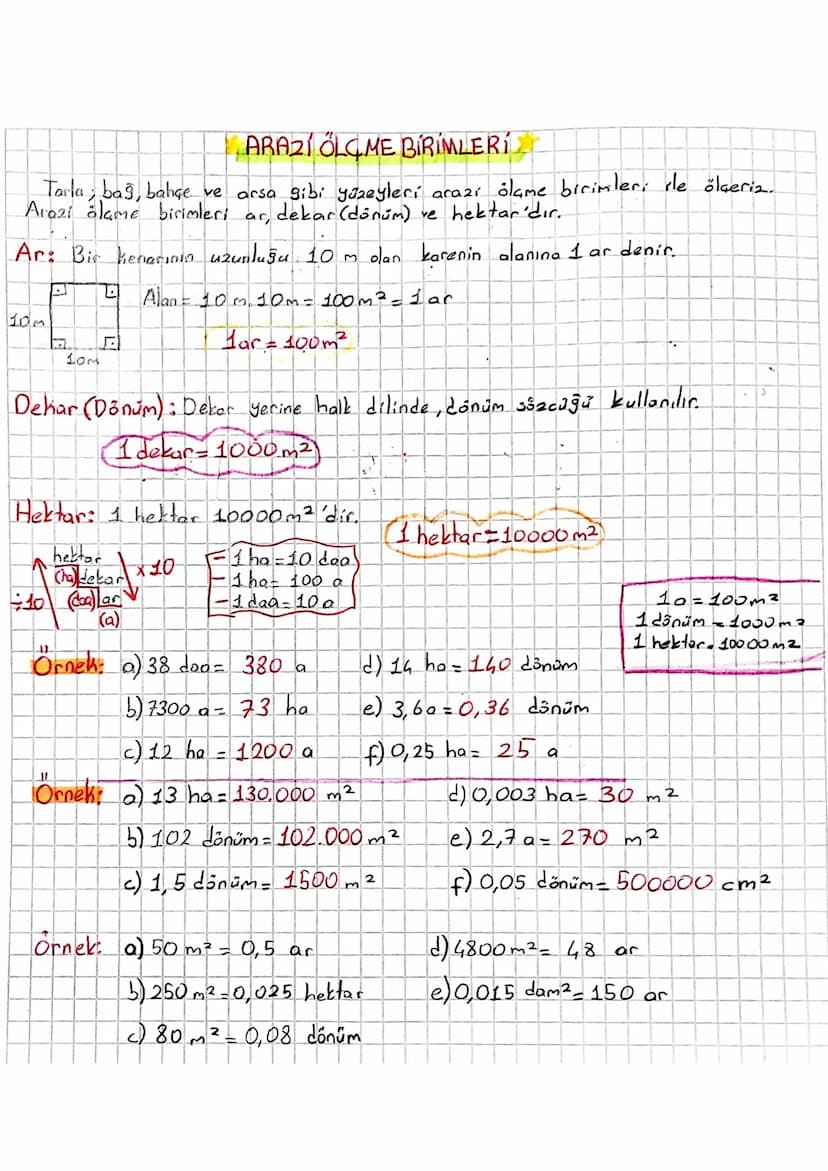 ARAZİ ÖLÇME BİRİMLERİ
Tarla, bağ, bahçe ve arsa gibi yüzeyleri arazi ölçme birimleri ile ölçeriz.
Arazi ölçme birimleri ar, dekar (dönüm) ve hektar'dır.
Ar: Bir kenarının uzunluğu 10 m olan karenin alanına 1 ar denir.
Alan = 10 m. 10m = 100 m² = 1 ar
10m
1ar = 100m²
10m
Dekar (Dönüm): Dekar yerine halk dilinde, dönüm sözcüğü kullanılır.
1 dekar = 1000 m²
Hektar: 1 hektar 10000m² 'dir.
1 hektar = 10000m²
hektar
(ha) dekar
(daa) ar
(a)
x10
÷10
- 1 ha = 10 daa
- 1 ha = 100 a
- 1 daa = 10 a
1a = 100m²
1 dönüm = 1000m²
1 hektar = 10000m²
Örnek: a) 38 daa = 380 a d) 14 ha = 140 dönüm
b) 7300 a = 73 ha e) 3,6a = 0,36 dönüm
c) 12 ha = 1200 a f) 0,25 ha = 25 a
Örnek: a) 13 ha = 130.000 m² d) 0,003 ha = 30 m²
b) 102 dönüm = 102.000 m² e) 2,7 a = 270 m²
c) 1,5 dönüm = 1500 m² f) 0,05 dönüm = 500000 cm²
Örnek: a) 50 m² = 0,5 ar d) 4800 m² = 48 ar
b) 250 m² = 0,025 hektar e) 0,015 dam² = 150 ar
c) 80 m² = 0,08 dönüm